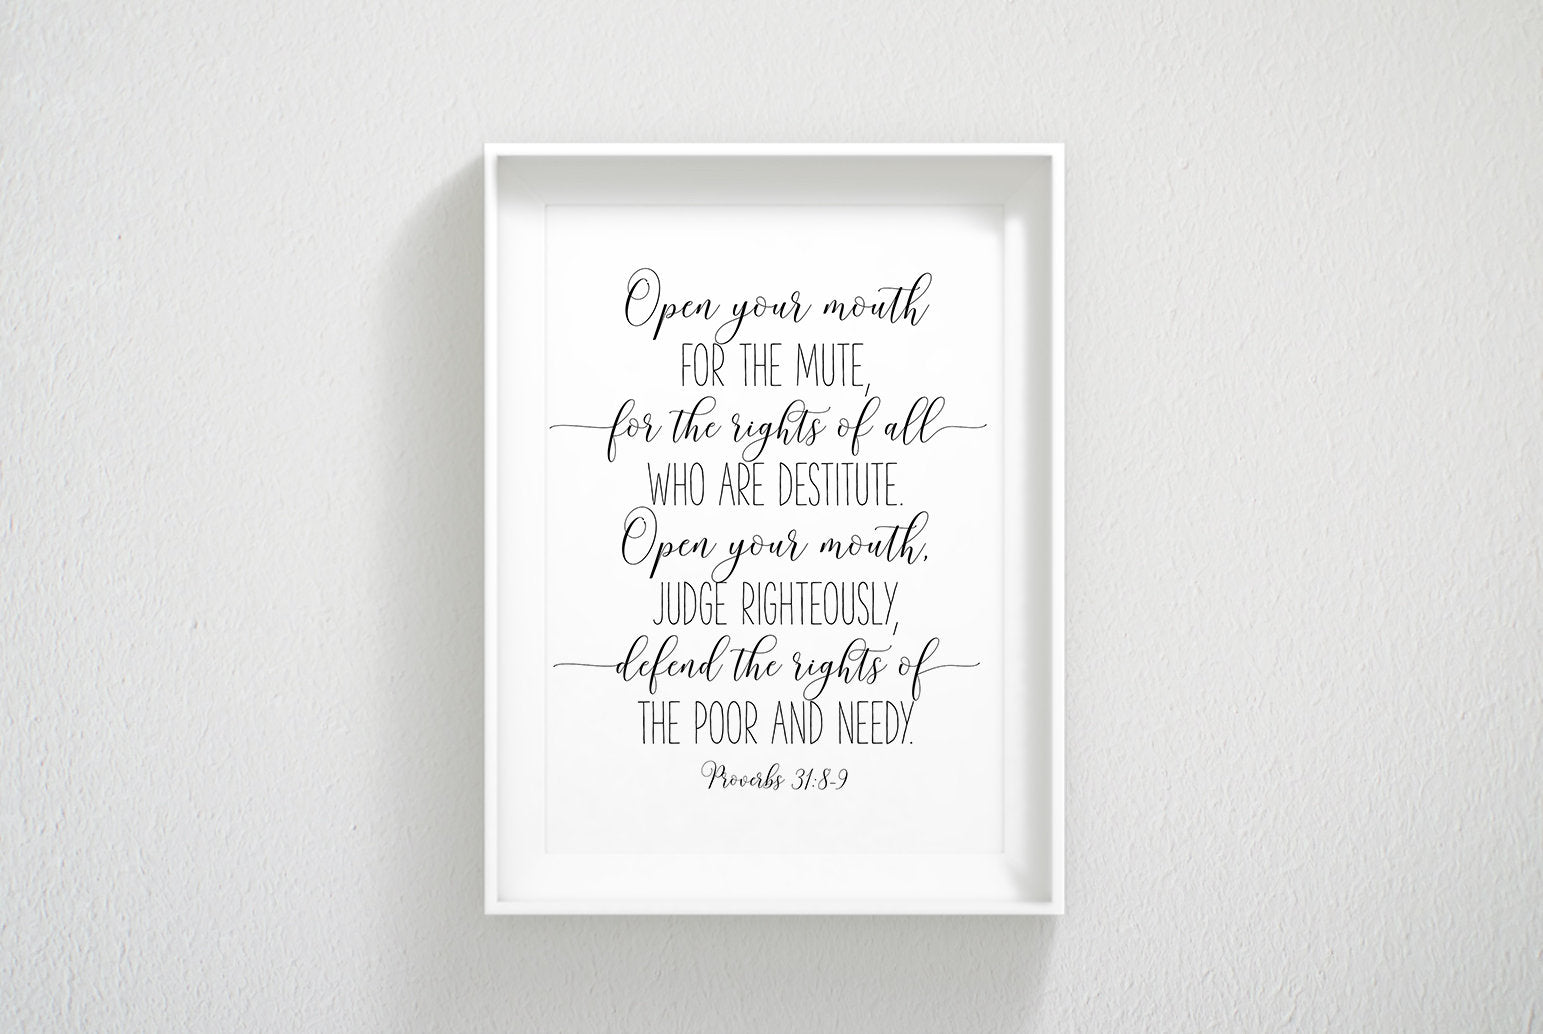 Open your mouth
FOR THE MUTE,
for the rights of all
WHO ARE DESTITUTE.
Open your mouth,
JUDGE RIGHTEOUSLY,
defend the rights of
THE POOR AND NEEDY.
Proverbs 31:8-9